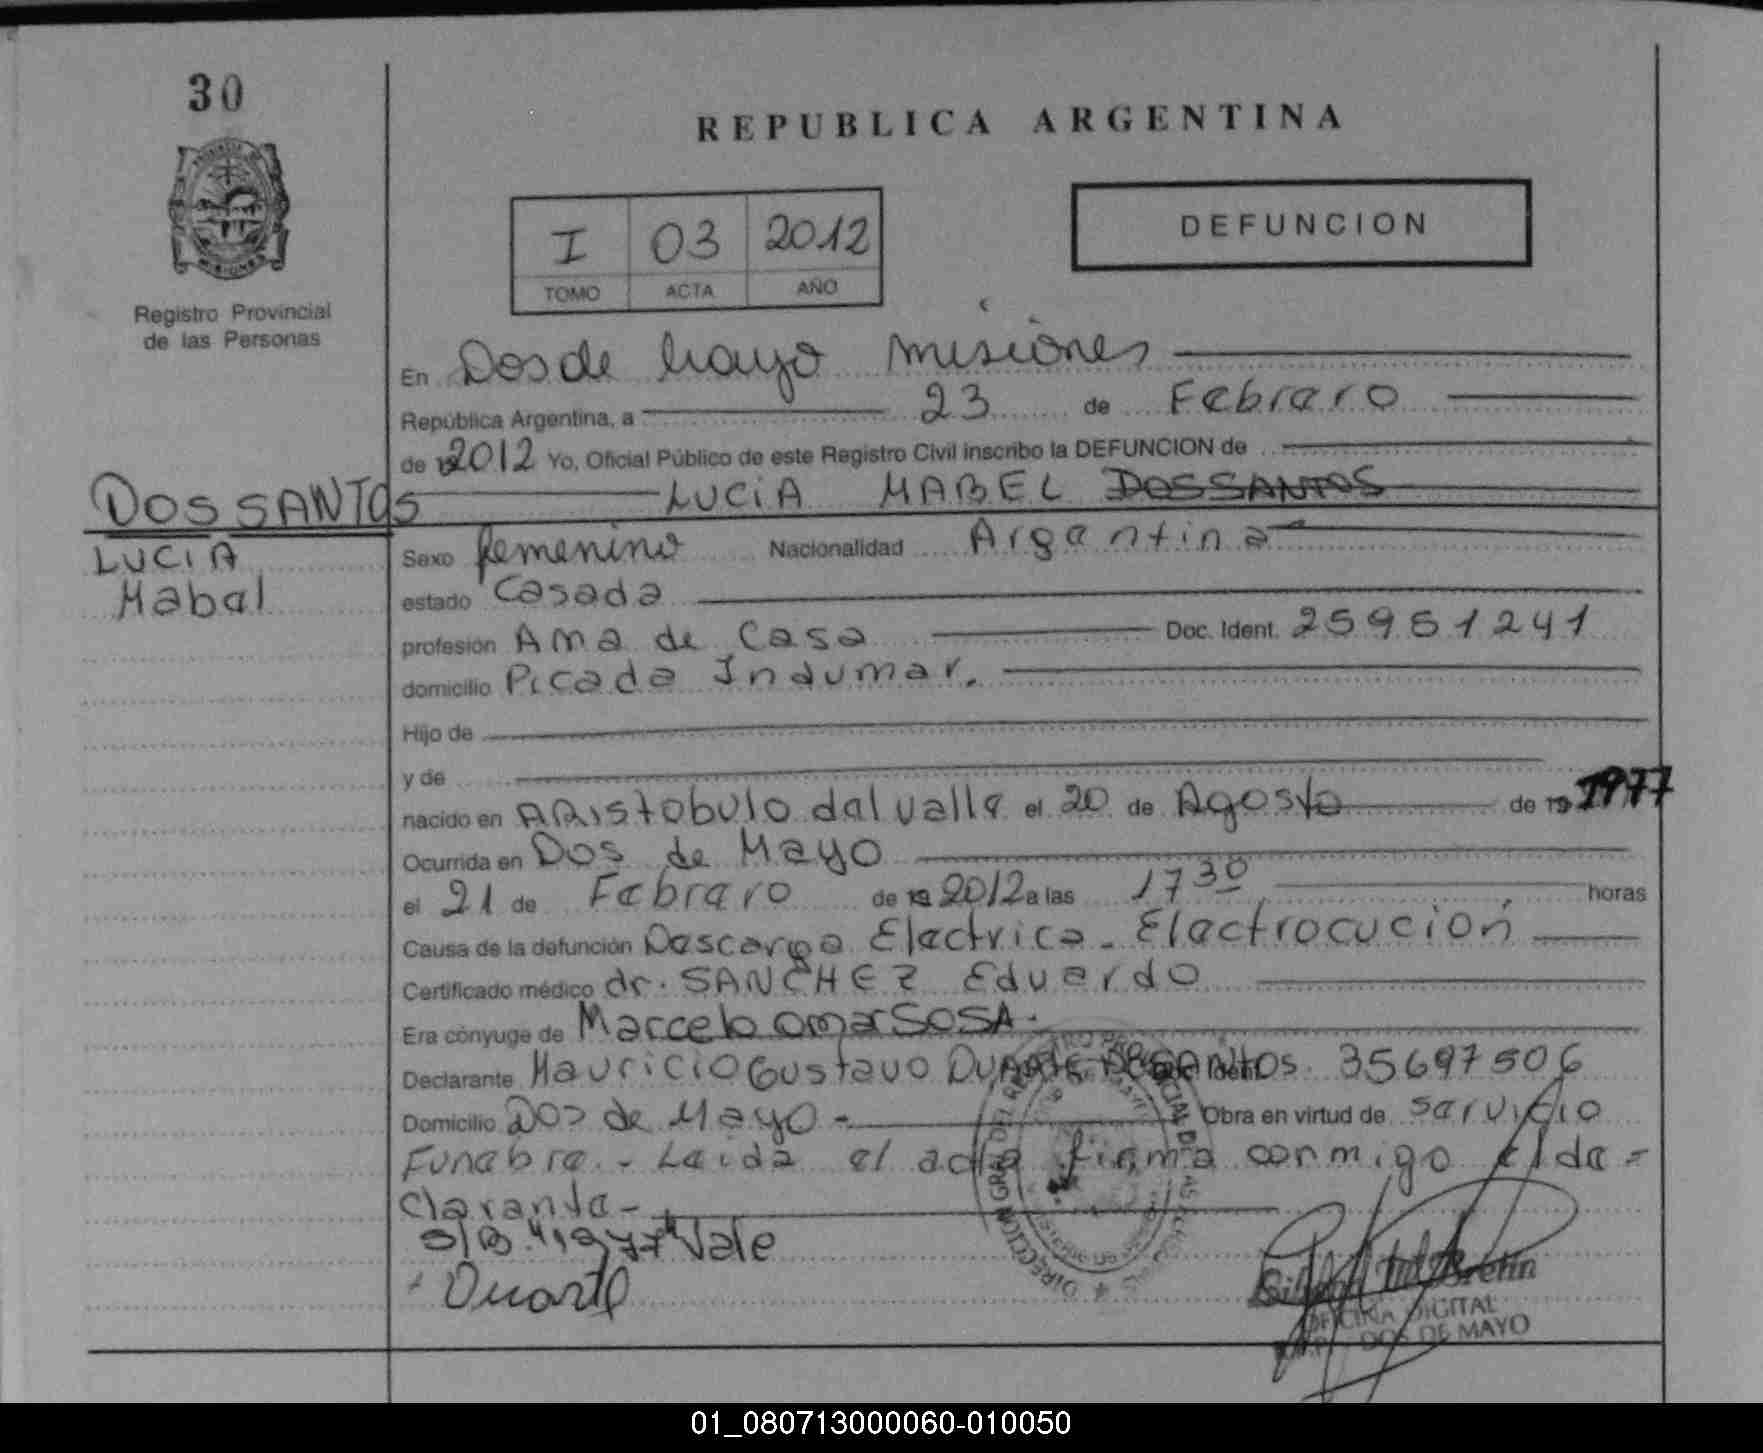 30
REPUBLICA ARGENTINA
I 03 2012
TOMO ACTA AÑO
DEFUNCION
Registro Provincial
de las Personas
En Dos de Mayo Misiones
República Argentina, a 23 de Febrero
de 2012 Yo, Oficial Público de este Registro Civil inscribo la DEFUNCION de
LUCIA MABEL DOSSANTOS
DOS SANTOS
LUCIA
Mabel
Sexo femenino Nacionalidad Argentina
estado Casada
profesión Ama de Casa Doc. Ident. 25951241
domicilio Picada Indumar.
Hijo de
y de
nacido en ARistobulo del valle el 20 de Agosto de 19 1977
Ocurrida en Dos de Mayo
el 21 de Febrero de 19 2012 a las 17 30 horas
Causa de la defunción Descarga Electrica - Electrocución
Certificado médico dr. SANCHEZ Eduardo
Era cónyuge de Marcelo Omar SOSA.
Declarante Mauricio Gustavo DUARTE DOSSANTOS. 35697506
Domicilio Dos de Mayo - Obra en virtud de servicio
Funebre. - Leida el acta firma conmigo el de =
clarante -
S/B "1977" Vale
Duarte
OFICINA DIGITAL
DOS DE MAYO
01_080713000060-010050